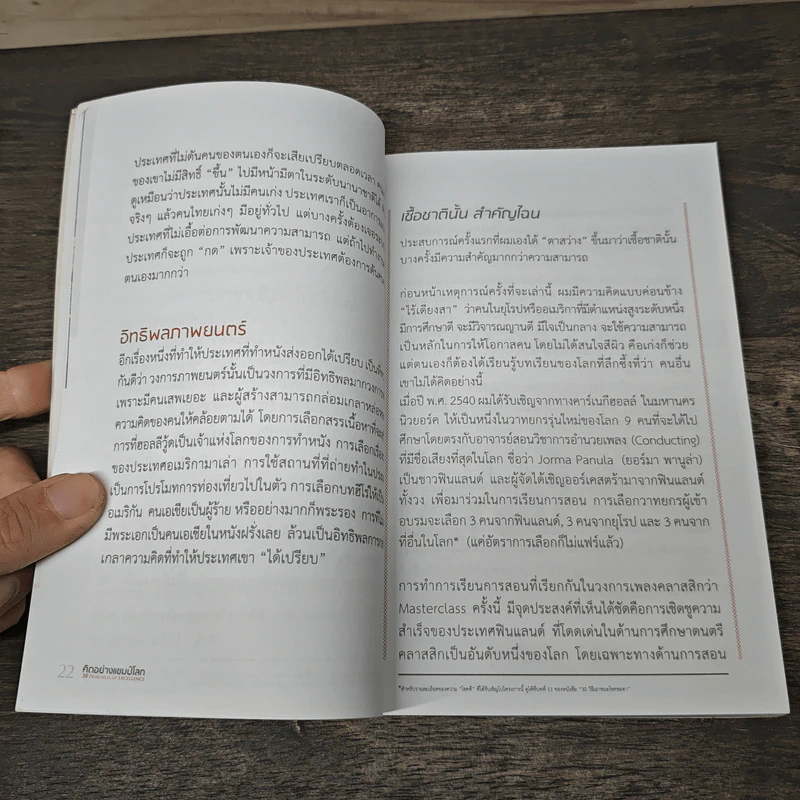 ประเทศที่ไม่ดันคนของตนเองก็จะเสียเปรียบตลอดเวลา
ของเขาไม่มีสิทธิ์ “ขึ้น” ไปมีหน้ามีตาในระดับนานาชาติได้
ดูเหมือนว่าประเทศนั้นไม่มีคนเก่ง ประเทศเราก็เป็น
จริงๆ แล้วคนไทยเก่งๆ มีอยู่ทั่วไป แต่บางครั้งต้อง
ประเทศที่ไม่เอื้อต่อการพัฒนาความสามารถ แต่ถ้าไป
ประเทศก็จะถูก “กด” เพราะเจ้าของประเทศต้องการดัน
ตนเองมากกว่า
อิทธิพลภาพยนตร์
อีกเรื่องหนึ่งที่ทำให้ประเทศที่ทำหนังส่งออกได้เปรียบ
กันดีว่า วงการภาพยนตร์นั้นเป็นวงการที่มีอิทธิพลมาก
เพราะมีคนเสพเยอะ และผู้สร้างสามารถกล่อมเกลา
ความคิดของคนให้คล้อยตามได้ โดยการเลือกสรรเนื้อหา
การที่ฮอลลีวู้ดเป็นเจ้าแห่งโลกของการทำหนัง การเลือก
ของประเทศอเมริกามาเล่า การใช้สถานที่ที่ถ่ายทำใน
เป็นการโปรโมทการท่องเที่ยวไปในตัว การเลือกบทฮีโร่ให้
อเมริกัน คนเอเชียเป็นผู้ร้าย หรืออย่างมากก็พระรอง การที่ไม่
มีพระเอกเป็นคนเอเชียในหนังฝรั่งเลย ล้วนเป็นอิทธิพล
เกลาความคิดที่ทำให้ประเทศเขา “ได้เปรียบ”
22 คิดอย่างแชมป์โลก
38 PRINCIPLES OF EXCELLENCE
เชื้อชาตินั้น สำคัญไฉน
ประสบการณ์ครั้งแรกที่ผมเองได้ “ตาสว่าง” ขึ้นมาว่าเชื้อชาตินั้น
บางครั้งมีความสำคัญมากกว่าความสามารถ
ก่อนหน้าเหตุการณ์ครั้งที่จะเล่านี้ ผมมีความคิดแบบค่อนข้าง
“ไร้เดียงสา” ว่าคนในยุโรปหรืออเมริกาที่มีตำแหน่งสูงระดับหนึ่ง
มีการศึกษาดี จะมีวิจารณญานดี มีใจเป็นกลาง จะใช้ความสามารถ
เป็นหลักในการให้โอกาสคน โดยไม่ได้สนใจสีผิว คือเก่งก็ช่วย
แต่ตนเองก็ต้องได้เรียนรู้บทเรียนของโลกที่ลึกซึ้งที่ว่า คนอื่น
เขาไม่ได้คิดอย่างนี้
เมื่อปี พ.ศ. 2540 ผมได้รับเชิญจากทางคาร์เนกีฮอลล์ ในมหานคร
นิวยอร์ค ให้เป็นหนึ่งในวาทยกรรุ่นใหม่ของโลก 9 คนที่จะได้ไป
ศึกษาโดยตรงกับอาจารย์สอนวิชาการอำนวยเพลง (Conducting)
ที่มีชื่อเสียงที่สุดในโลก ชื่อว่า Jorma Panula (ยอร์มา พานูล่า)
เป็นชาวฟินแลนด์ และผู้จัดได้เชิญออร์เคสตร้ามาจากฟินแลนด์
ทั้งวง เพื่อมาร่วมในการเรียนการสอน การเลือกวาทยกรผู้เข้า
อบรมจะเลือก 3 คนจากฟินแลนด์, 3 คนจากยุโรป และ 3 คนจาก
ที่อื่นในโลก* (แค่อัตราการเลือกก็ไม่แฟร์แล้ว)
การทำการเรียนการสอนที่เรียกกันในวงการเพลงคลาสสิกว่า
Masterclass ครั้งนี้ มีจุดประสงค์ที่เห็นได้ชัดคือการเชิดชูความ
สำเร็จของประเทศฟินแลนด์ ที่โดดเด่นในด้านการศึกษาดนตรี
คลาสสิกเป็นอันดับหนึ่งของโลก โดยเฉพาะทางด้านการสอน
*สำหรับรายละเอียดของความ “โชคดี” ที่ได้รับเชิญไปโครงการนี้ ดูได้ที่บทที่ 11 ของหนังสือ “30 วิธีเอาชนะโชคชะตา”